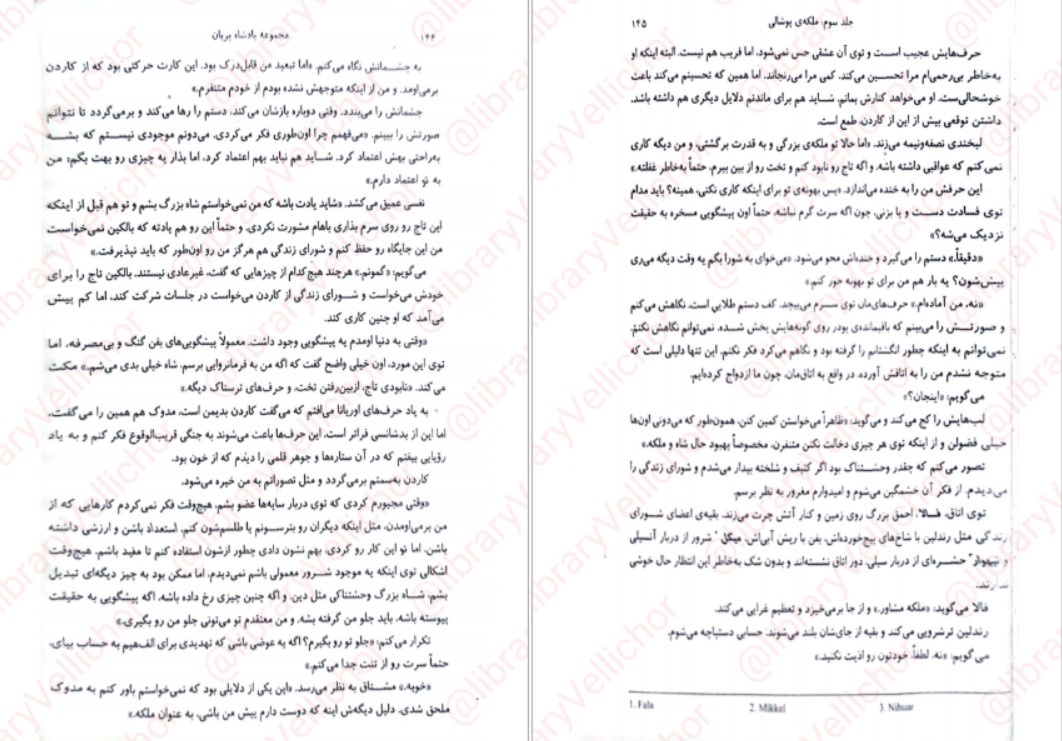 ۱۴۴
مجموعه پادشاه پریان
به چشمانش نگاه می‌کنم. «اما تبعید من قابل‌درک بود. این کارت حرکتی بود که از کاردن
برمی‌اومد. و من از اینکه متوجهش نشده بودم از خودم متنفرم.»
چشمانش را می‌بندد. وقتی دوباره بازشان می‌کند، دستم را رها می‌کند و برمی‌گردد تا نتوانم
صورتش را ببینم. «می‌فهمم چرا اون‌طوری فکر می‌کردی. می‌دونم موجودی نیستم که بشه
به‌راحتی بهش اعتماد کرد. شاید هم نباید بهم اعتماد کرد، اما بذار یه چیزی رو بهت بگم: من
به تو اعتماد دارم.»
نفسی عمیق می‌کشد. «شاید یادت باشه که من نمی‌خواستم شاه بزرگ بشم و تو هم قبل از اینکه
این تاج رو روی سرم بذاری باهام مشورت نکردی. و حتماً این رو هم یادته که بالکین نمی‌خواست
من این جایگاه رو حفظ کنم و شورای زندگی هم هرگز من رو اون‌طور که باید نپذیرفت.»
می‌گویم: «گمونم.» هرچند هیچ‌کدام از چیزهایی که گفت، غیرعادی نیستند. بالکین تاج را برای
خودش می‌خواست و شورای زندگی از کاردن می‌خواست در جلسات شرکت کند، اما کم پیش
می‌آمد که او چنین کاری کند.
«وقتی به دنیا اومدم یه پیشگویی وجود داشت. معمولاً پیشگویی‌های بفن گنگ و بی‌مصرفه، اما
توی این مورد، اون خیلی واضح گفت که اگه من به فرمانروایی برسم، شاه خیلی بدی می‌شم.» مکث
می‌کند. «نابودی تاج، ازبین‌رفتن تخت، و حرف‌های ترسناک دیگه.»
به یاد حرف‌های اوریانا می‌افتم که می‌گفت کاردن بدیمن است، مدوک هم همین را می‌گفت،
اما این از بدشانسی فراتر است. این حرف‌ها باعث می‌شوند به جنگی قریب‌الوقوع فکر کنم و به یاد
رؤیایی بیفتم که در آن ستاره‌ها و جوهر قلمی را دیدم که از خون بود.
کاردن به‌سمتم برمی‌گردد و مثل تصوراتم به من خیره می‌شود.
«وقتی مجبورم کردی که توی دربار سایه‌ها عضو بشم، هیچ‌وقت فکر نمی‌کردم کارهایی که از
من برمی‌اومدن، مثل اینکه دیگران رو بترسونم یا طلسم‌شون کنم، استعداد باشن و ارزشی داشته
باشن. اما تو این کار رو کردی. بهم نشون دادی چطور ازشون استفاده کنم تا مفید باشم. هیچ‌وقت
اشکالی توی اینکه یه موجود شرور معمولی باشم نمی‌دیدم، اما ممکن بود به چیز دیگه‌ای تبدیل
بشم، شاه بزرگ وحشتناکی مثل دین. و اگه چنین چیزی رخ داده باشه، اگه پیشگویی به حقیقت
پیوسته باشه، باید جلو من گرفته بشه. و من معتقدم تو می‌تونی جلو من رو بگیری.»
تکرار می‌کنم: «جلو تو رو بگیرم؟ اگه یه عوضی باشی که تهدیدی برای الفهیم به حساب بیای،
حتماً سرت رو از تنت جدا می‌کنم.»
«خوبه.» مشتاق به نظر می‌رسد. «این یکی از دلایلی بود که نمی‌خواستم باور کنم به مدوک
ملحق شدی. دلیل دیگه‌ش اینه که دوست دارم پیش من باشی، به عنوان ملکه.»
جلد سوم: ملکه‌ی پوشالی
۱۴۵
حرف‌هایش عجیب است و توی آن عشقی حس نمی‌شود، اما فریب هم نیست. البته اینکه او
به‌خاطر بی‌رحمی‌ام مرا تحسین می‌کند، کمی مرا می‌رنجاند، اما همین که تحسینم می‌کند باعث
خوشحالی‌ست. او می‌خواهد کنارش بمانم، شاید هم برای ماندنم دلایل دیگری هم داشته باشد.
داشتن توقعی بیش از این از کاردن، طمع است.
لبخندی نصفه‌نیمه می‌زند. «اما حالا تو ملکه‌ی بزرگی و به قدرت برگشتی، و من دیگه کاری
نمی‌کنم که عواقبی داشته باشه. و اگه تاج رو نابود کنم و تخت رو از بین ببرم، حتماً به‌خاطر غفلته.»
این حرفش من را به خنده می‌اندازد. «پس بهونه‌ی تو برای اینکه کاری نکنی، همینه؟ باید مدام
توی فسادت دست و پا بزنی، چون اگه سرت گرم نباشه، حتماً اون پیشگویی مسخره به حقیقت
نزدیک می‌شه؟»
«دقیقاً.» دستم را می‌گیرد و خنده‌اش محو می‌شود. «می‌خوای به شورا بگم یه وقت دیگه می‌ری
پیش‌شون؟ یه بار هم من برای تو بهونه جور کنم.»
«نه. من آماده‌ام.» حرف‌های‌مان توی سرم می‌پیچد. کف دستم طلایی است. نگاهش می‌کنم
و صورتش را می‌بینم که باقیمانده‌ی پودر روی گونه‌هایش پخش شده. نمی‌توانم نگاهش نکنم.
نمی‌توانم به اینکه چطور انگشتانم را گرفته بود و نگاهم می‌کرد فکر نکنم. این تنها دلیلی است که
متوجه نشدم من را به اتاقش آورده. در واقع به اتاق‌مان، چون ما ازدواج کرده‌ایم.
می‌گویم: «اینجان؟»
لب‌هایش را کج می‌کند و می‌گوید: «ظاهراً می‌خواستن کمین کنن. همون‌طور که می‌دونی اون‌ها
خیلی فضولن و از اینکه توی هر چیزی دخالت نکنن متنفرن، مخصوصاً بهبود حال شاه و ملکه.»
تصور می‌کنم که چقدر وحشتناک بود اگر کثیف و شلخته بیدار می‌شدم و شورای زندگی را
می‌دیدم. از فکر آن خشمگین می‌شوم و امیدوارم مغرور به نظر برسم.
توی اتاق، فالا¹، احمق بزرگ روی زمین و کنار آتش چرت می‌زند. بقیه‌ی اعضای شورای
زندگی، مثل رندلین با شاخ‌های پیچ‌خورده‌اش، بفن با ریش آبی‌اش، میکل² شرور از دربار آنسیلی
و نیهوار³ حشره‌ای از دربار سیلی، دور اتاق نشسته‌اند و بدون شک به‌خاطر این انتظار حال خوشی
ندارند.
فالا می‌گوید: «ملکه مشاور.» و از جا برمی‌خیزد و تعظیم غرایی می‌کند.
رندلین ترشرویی می‌کند و بقیه از جای‌شان بلند می‌شوند. حسابی دستپاچه می‌شوم.
می‌گویم: «نه. لطفاً. خودتون رو اذیت نکنید.»
1. Fala
2. Mikkel
3. Nihuar
@libraryVellichor